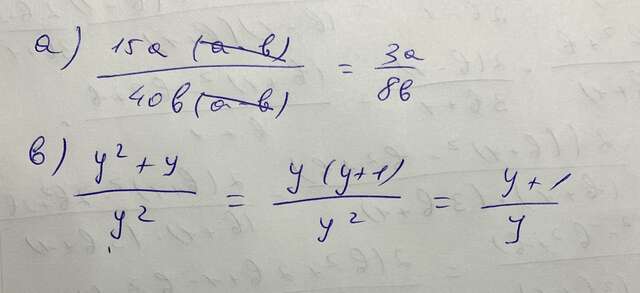 а) 15a (a-b) / 40b (a-b) = 3a / 8b
в) y² + y / y² = y (y+1) / y² = y+1 / y